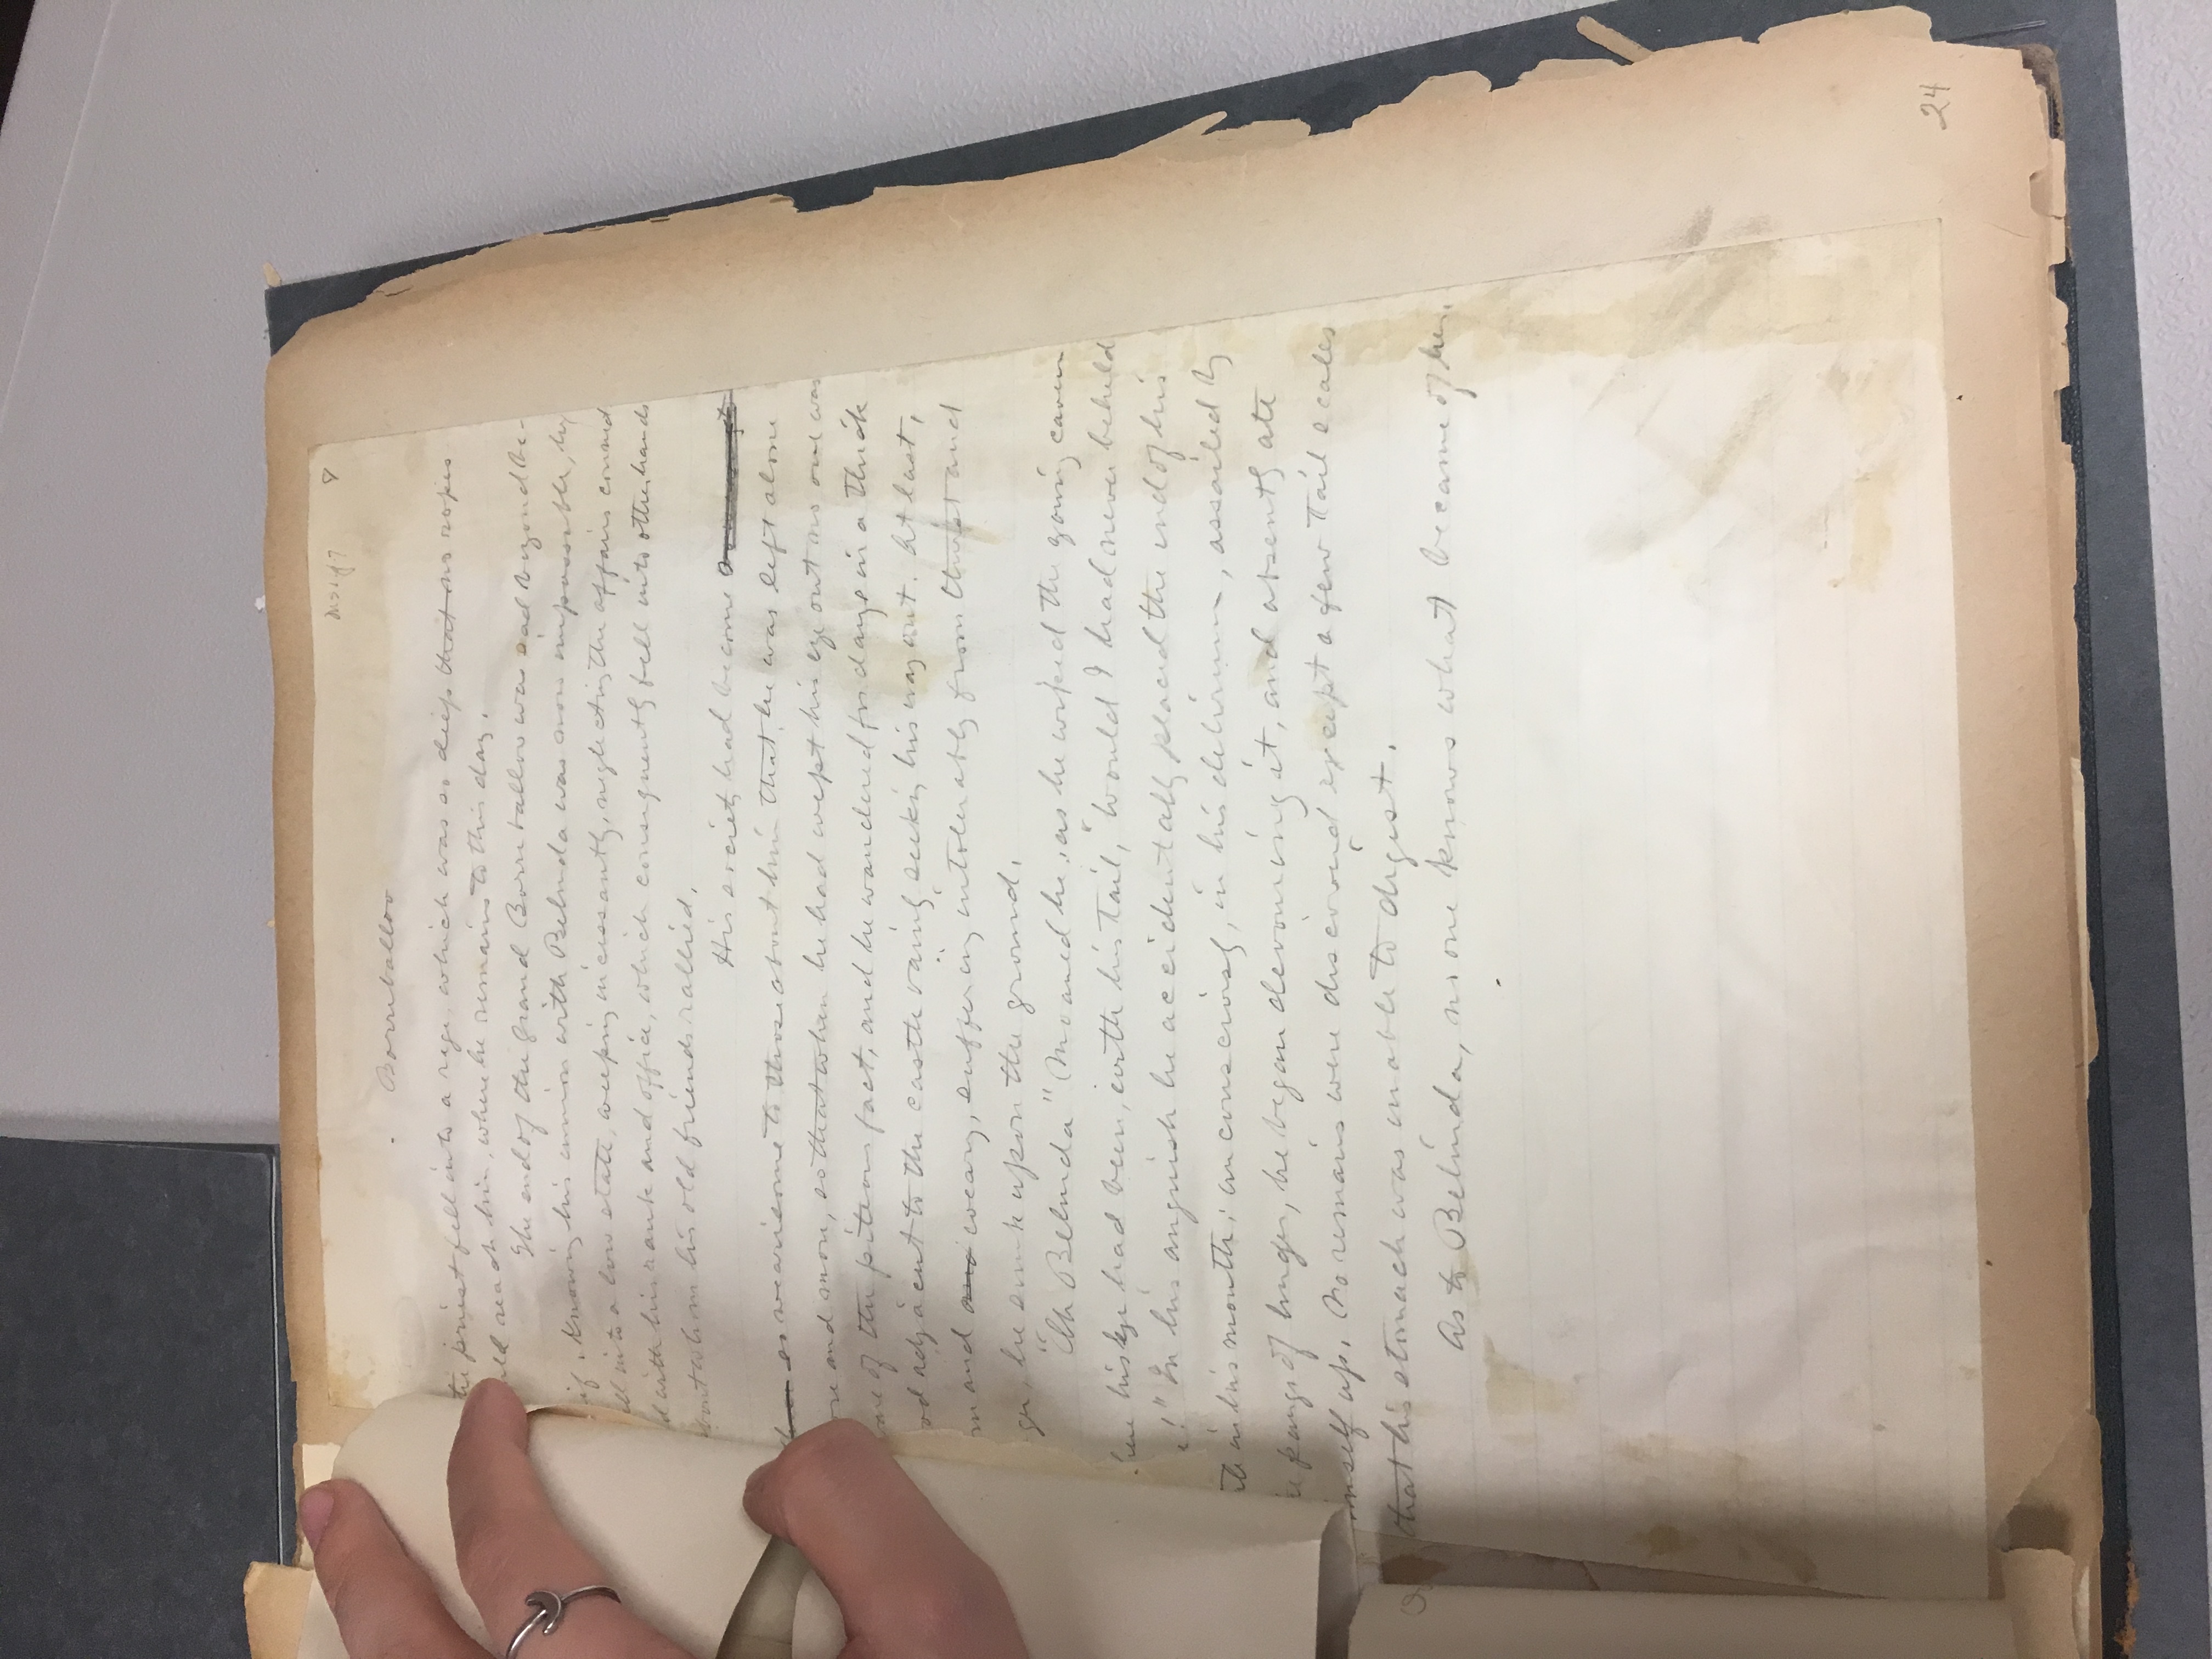 8
Borreballoo
the priest fell into a rage, which was so deep that no ropes
uld reach him, where he remains to this day.
The end of the grand Borreballoo was sad beyond be-
if. Knowing his union with Belinda was now impossible, he
ell into a low state, weeping incessantly, neglecting the affairs connect
d with his rank and office, which consequently fell into other hands
bout whom his old friends rallied.
His society had become
so wearisome to those about him that he was left alone
ore and more, so that when he had wept his eye out no one was
ware of the piteous fact, and he wandered for days in a thick
od adjacent to the castle vainly seeking his way out. At last,
rn and and weary, suffering intolerably from thirst and
ger, he sunk upon the ground.
"Oh Belinda" Moaned he, as he wiped the yawning cavern
here his eye had been, with his tail, "Would I had never beheld
e!" In his anguish he accidentally placed the end of his
in his mouth: unconsciously, in his delirium, assailed by
e pangs of hunger, he began devouring it, and absently ate
imself up. No remains were discovered except a few tail scales
that his stomach was unable to digest.
As to Belinda, no one knows what became of her.
24